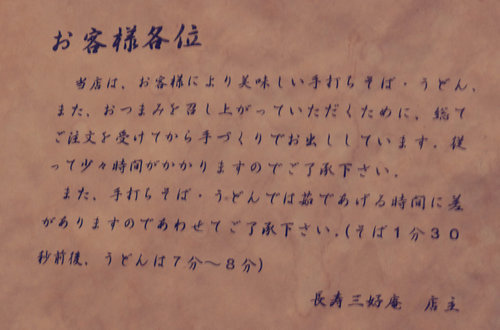 お客様各位
当店は、お客様により美味しい手打ちそば・うどん、
また、おつまみを召し上がっていただくために、総て
ご注文を受けてから手づくりでお出ししています。従
って少々時間がかかりますのでご了承下さい。
また、手打ちそば・うどんでは茹であげる時間に差
がありますのであわせてご了承下さい。(そば1分30
秒前後、うどんは7分〜8分)
長寿三好庵 店主